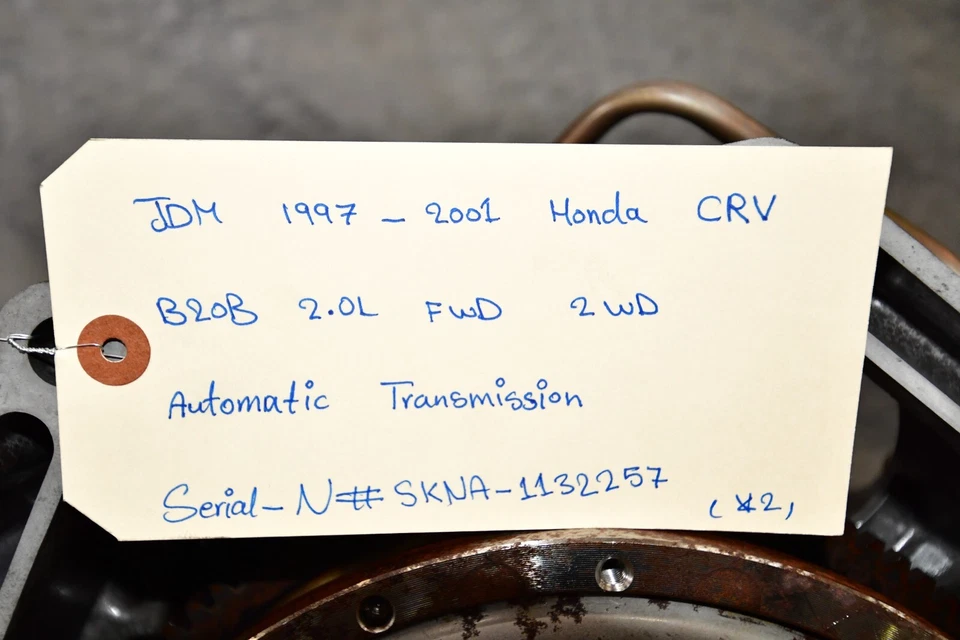 JDM 1997 - 2001 Honda CRV
B20B 2.0L FWD 2WD
Automatic Transmission
Serial-N# SKNA-1132257